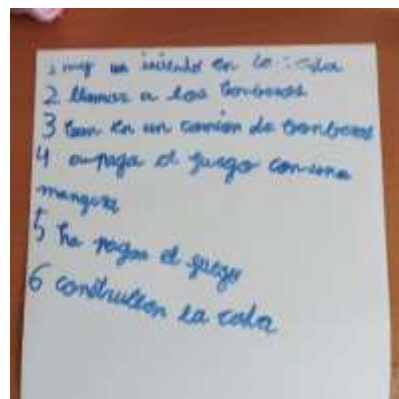 1 muy un insendo en la cada
2 llamar a los bonberos
3 ban en un camion de bonberos
4 apaga el fuego con una
mangera
5 ha pagan el fuego
6 construllen la cada